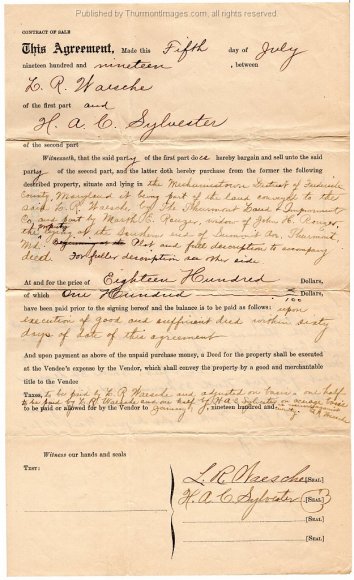 Published by ThurmontImages.com, all rights reserved
CONTRACT OF SALE
This Agreement, Made this Fifth day of July
nineteen hundred and nineteen, between
L. R. Waesche
of the first part and
H. A. C. Sylvester
of the second part
Witnesseth, that the said party of the first part does hereby bargain and sell unto the said
party of the second part, and the latter doth hereby purchase from the former the following
described property, situate and lying in the Mechanicstown District of Frederick
County, Maryland it being part of the land conveyed to the
said L. R. Waesche by The Thurmont Land & Improvement
Co. and part by Martha E. Rouzer, widow of John R. Rouzer,
the property lying at the Southern end of Summit Av., Thurmont,
Md. Plat and full description to accompany
deed. For fuller description see other side
At and for the price of Eighteen Hundred Dollars,
of which One Hundred Dollars,
have been paid prior to the signing hereof and the balance is to be paid as follows: upon
execution of good and sufficient deed within sixty
days of date of this agreement
And upon payment as above of the unpaid purchase money, a Deed for the property shall be executed
at the Vendee's expense by the Vendor, which shall convey the property by a good and merchantable
title to the Vendee
Taxes, to be paid by L R Waesche and adjusted on basis - one half
to be paid by L. R. Waesche and one half by H A C Sylvester on average basis
to be paid or allowed for by the Vendor to January 1, nineteen hundred and
Witness our hands and seals
TEST:
L. R. Waesche [SEAL]
H. A. C Sylvester [SEAL]
[SEAL]
[SEAL]